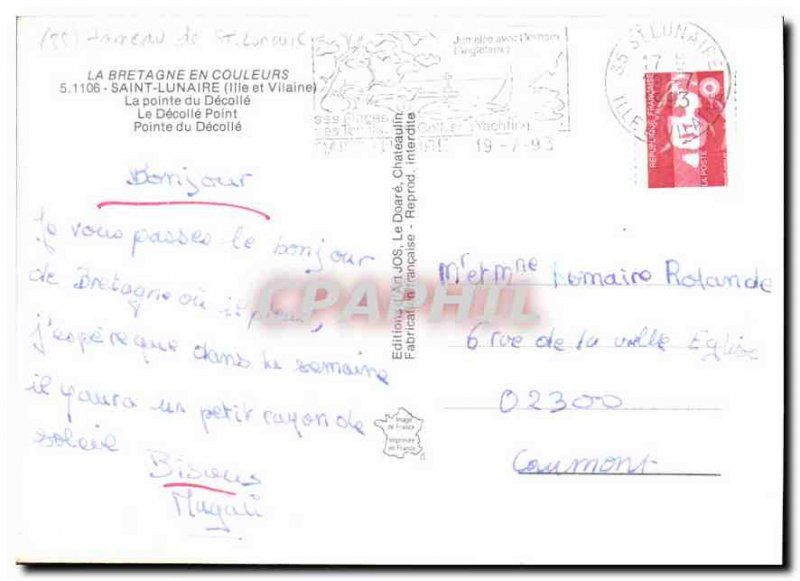 (35) Hameau de St. Lunaire
LA BRETAGNE EN COULEURS
5.1106 - SAINT-LUNAIRE (Ille et Vilaine)
La pointe du Décollé
Le Décollé Point
Pointe du Décollé
Jumelée avec
(Angleterre)
ses Plages
Yachting
19-7-93
35 ST LUNAIRE
RÉPUBLIQUE FRANÇAISE
LA POSTE
Bonjour
Je vous passes le bonjour
de Bretagne où il pleut,
j'espère que dans la semaine
il y aura un petit rayon de
soleil
Bisous
Magali
Editions d'Art JOS, Le Doaré, Chateaulin
Fabrication française - Reprod. interdite
CPAPHIL
Image
de France
Imprimée
en France
Mr et Mme Lemaire Rolande
6 rue de la vielle Eglise
02300
Caumont